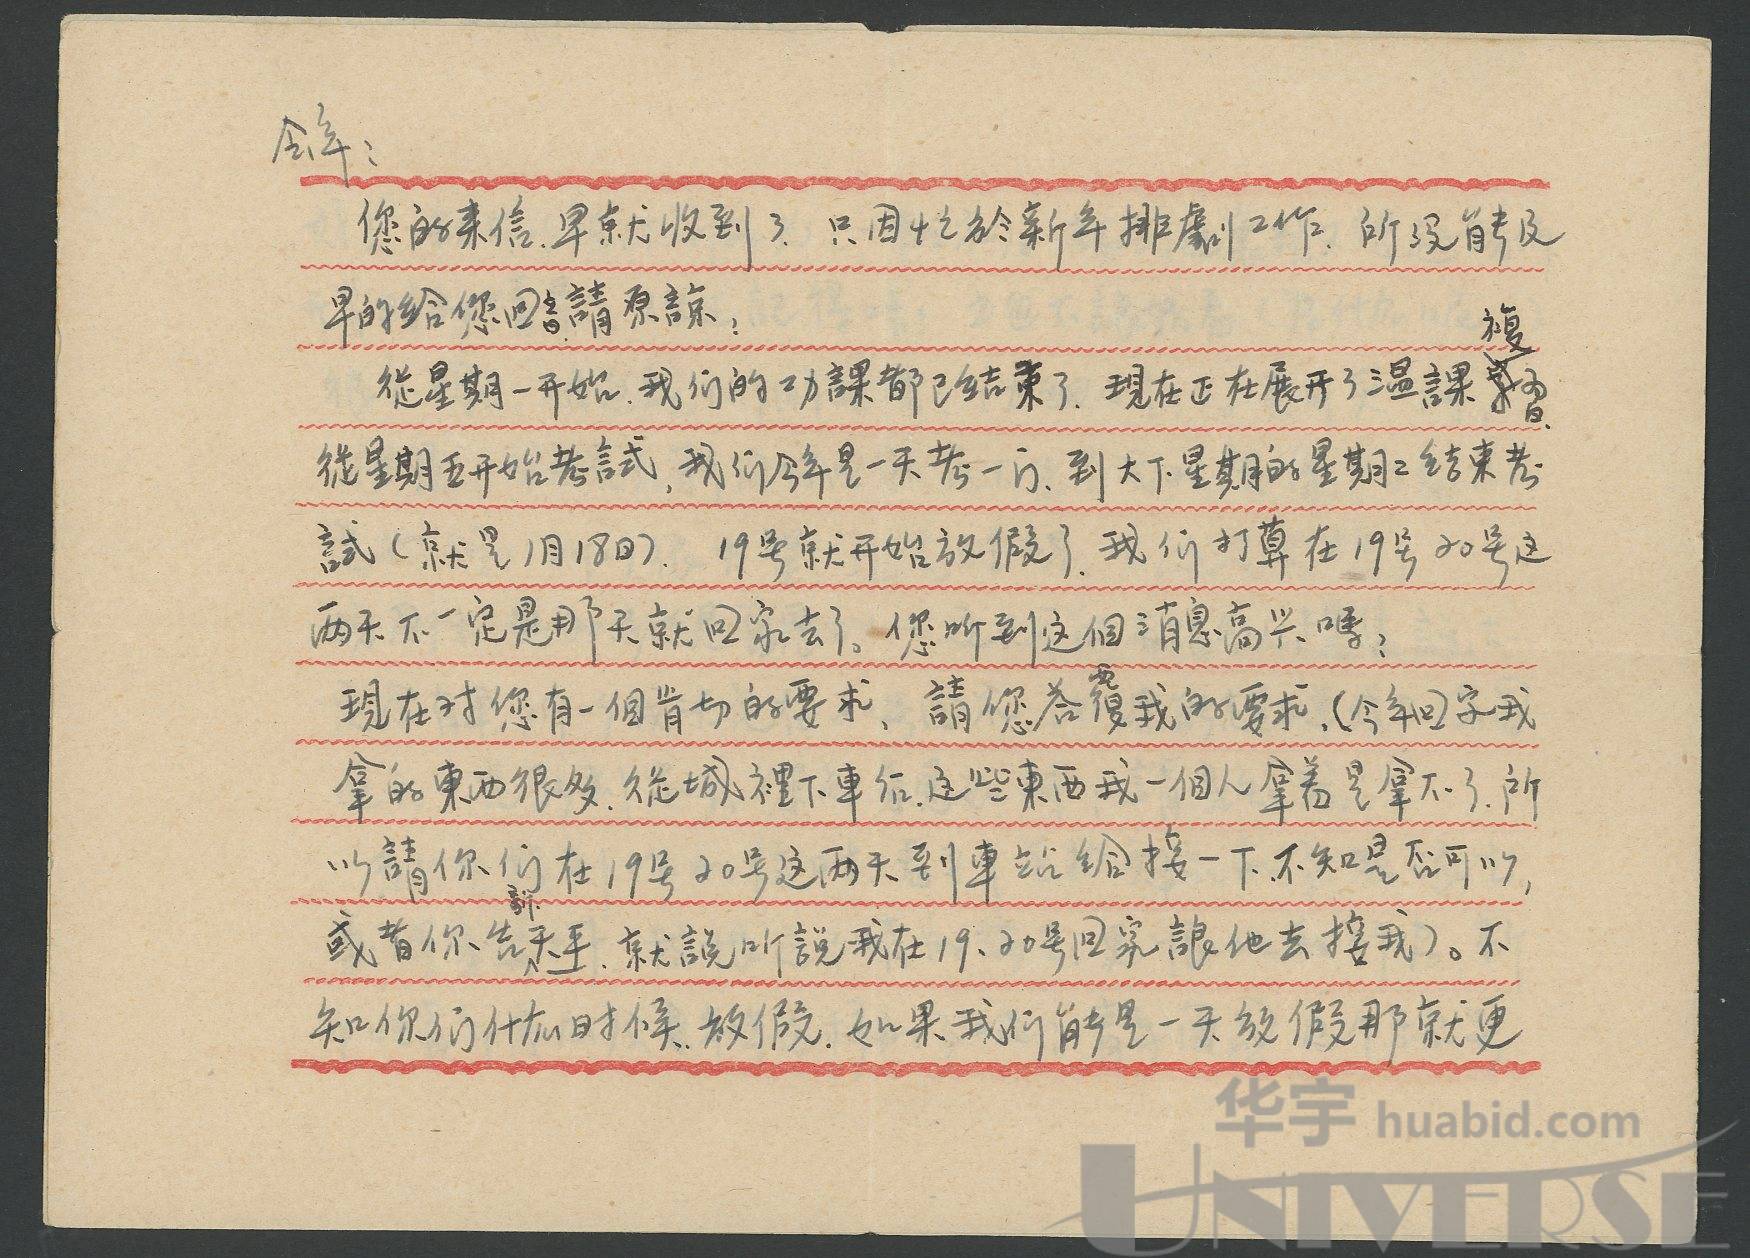 您的来信.早就收到了.只因忙於新年排劇工作.所没能及
早的给您回書.請原諒:
從星期一开始.我们的功課都已结束了.現在正在展开了温課複習.
從星期五开始考試,我们今年是一天考一门、到大下星期的星期二结束考
試(就是1月18日). 19号就开始放假了.我们打算在19号20号这
两天不一定是那天就回家去了。您听到这個消息高兴嗎:
現在对您有一個肯切的要求,請您答覆我的要求.(今年回字我
拿的東西很多.從城裡下車后.这些東西我一個人拿着是拿不了.所
以請你们在19号20号这两天到車站给接一下.不知是否可以,
或者你告訴天平.就説听説我在19、20号回家讓他去接我)。不
知你们什么时候.放假.如果我们能是一天放假那就更
华宇 huabid.com
UNIVERSE